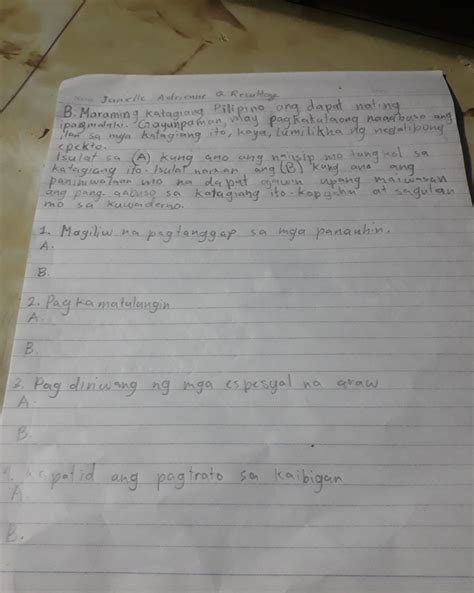 Janelle Adrienne Q
B. Maraming katagiang Pilipino ang dapat nating
ipagmalaki. Gayunpaman, may pagkakataong naaabuso ang
ilan sa mga katagiang ito, kaya, lumilikha ng negatibong
epekto.
Isulat sa (A) kung ano ang naiisip mo tungkol sa
katagiang ito. Isulat naman ang (B) kung ano ang
paniniwalaan mo na dapat gawin upang maiwasan
ang pang aabuso sa katagiang ito. kopyahin at sagutan
mo sa kuwaderno.
1. Magiliw na pagtanggap sa mga panauhin.
A.
B.
2. Pagkamatulungin
A.
B.
3. Pag diriwang ng mga espesyal na araw
A.
B.
4. kapatid ang pagtrato sa kaibigan
A
B.